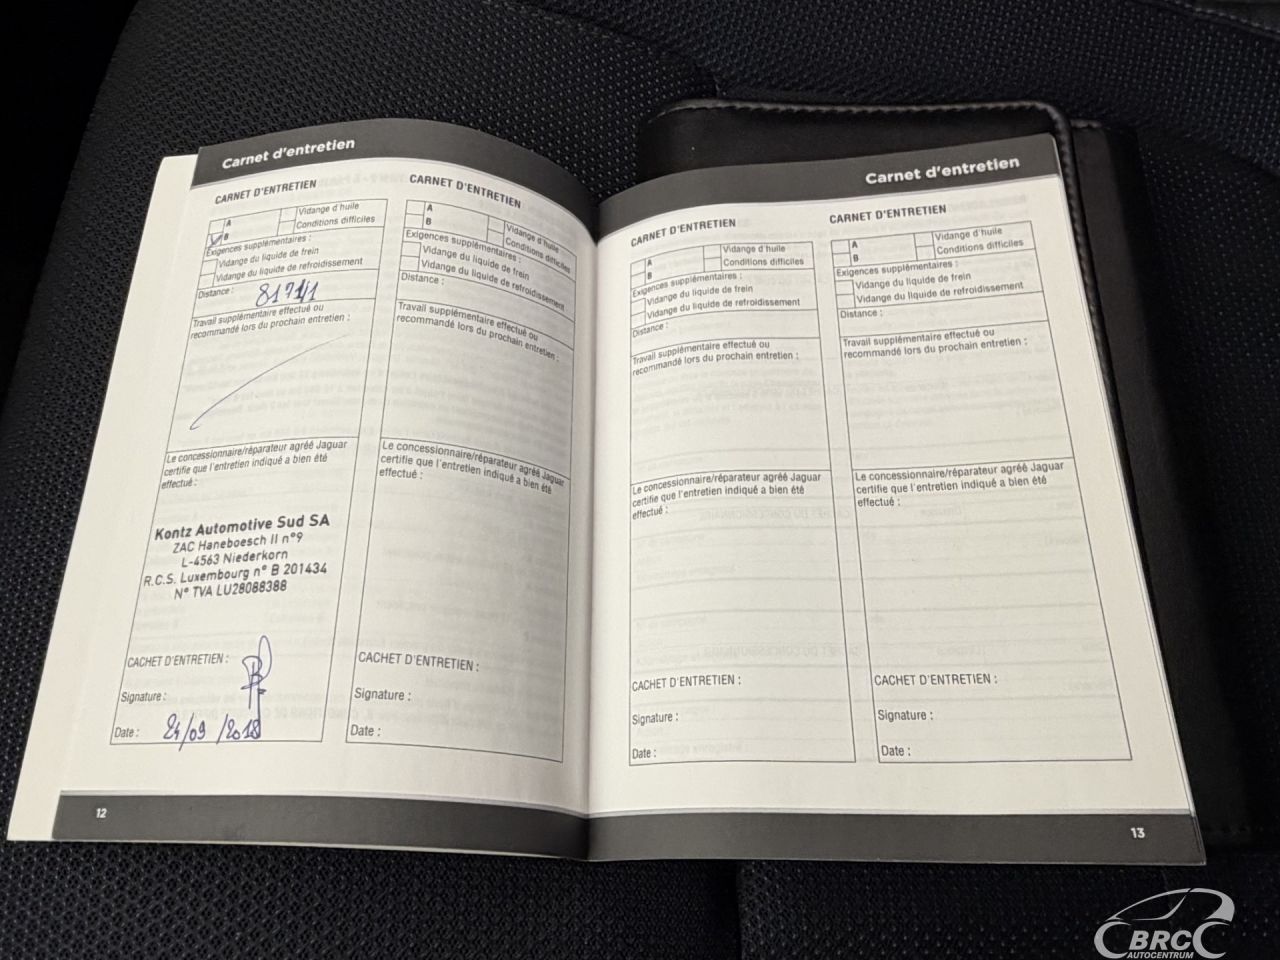 Carnet d'entretien
CARNET D'ENTRETIEN
A
B
Vidange d'huile
Conditions difficiles
Exigences supplémentaires :
Vidange du liquide de frein
Vidange du liquide de refroidissement
Distance :
Travail supplémentaire effectué ou
recommandé lors du prochain entretien :
Le concessionnaire/réparateur agréé Jaguar
certifie que l'entretien indiqué a bien été
effectué :
Kontz Automotive Sud SA
ZAC Haneboesch II n°9
L-4563 Niederkorn
R.C.S. Luxembourg n° B 201434
N° TVA LU28088388
CACHET D'ENTRETIEN :
Signature :
Date : 24/09/2018
12
CARNET D'ENTRETIEN
A
B
Vidange d'huile
Conditions difficiles
Exigences supplémentaires :
Vidange du liquide de frein
Vidange du liquide de refroidissement
Distance :
Travail supplémentaire effectué ou
recommandé lors du prochain entretien :
Le concessionnaire/réparateur agréé Jaguar
certifie que l'entretien indiqué a bien été
effectué :
CACHET D'ENTRETIEN :
Signature :
Date :
Carnet d'entretien
CARNET D'ENTRETIEN
A
B
Vidange d'huile
Conditions difficiles
Exigences supplémentaires :
Vidange du liquide de frein
Vidange du liquide de refroidissement
Distance :
Travail supplémentaire effectué ou
recommandé lors du prochain entretien :
Le concessionnaire/réparateur agréé Jaguar
certifie que l'entretien indiqué a bien été
effectué :
CACHET D'ENTRETIEN :
Signature :
Date :
CARNET D'ENTRETIEN
A
B
Vidange d'huile
Conditions difficiles
Exigences supplémentaires :
Vidange du liquide de frein
Vidange du liquide de refroidissement
Distance :
Travail supplémentaire effectué ou
recommandé lors du prochain entretien :
Le concessionnaire/réparateur agréé Jaguar
certifie que l'entretien indiqué a bien été
effectué :
CACHET D'ENTRETIEN :
Signature :
Date :
13
BRC
AUTOCENTRUM